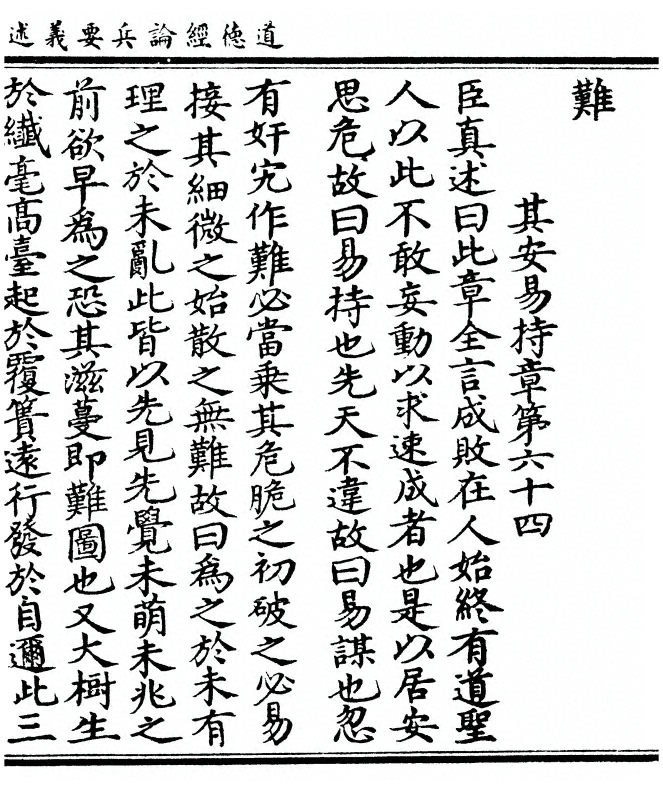 道徳經論兵要義述
難
其安易持章第六十四
臣真述曰此章全言成敗在人始終有道聖
人以此不敢妄動以求速成者也是以居安
思危故曰易持也先天不違故曰易謀也忽
有奸宄作難必當乗其危脆之初破之必易
接其細微之始散之無難故曰為之於未有
理之於未亂此皆以先見先覺未萌未兆之
前欲早為之恐其滋蔓即難圖也又大樹生
於纎毫髙臺起於覆簣遠行發於自邇此三